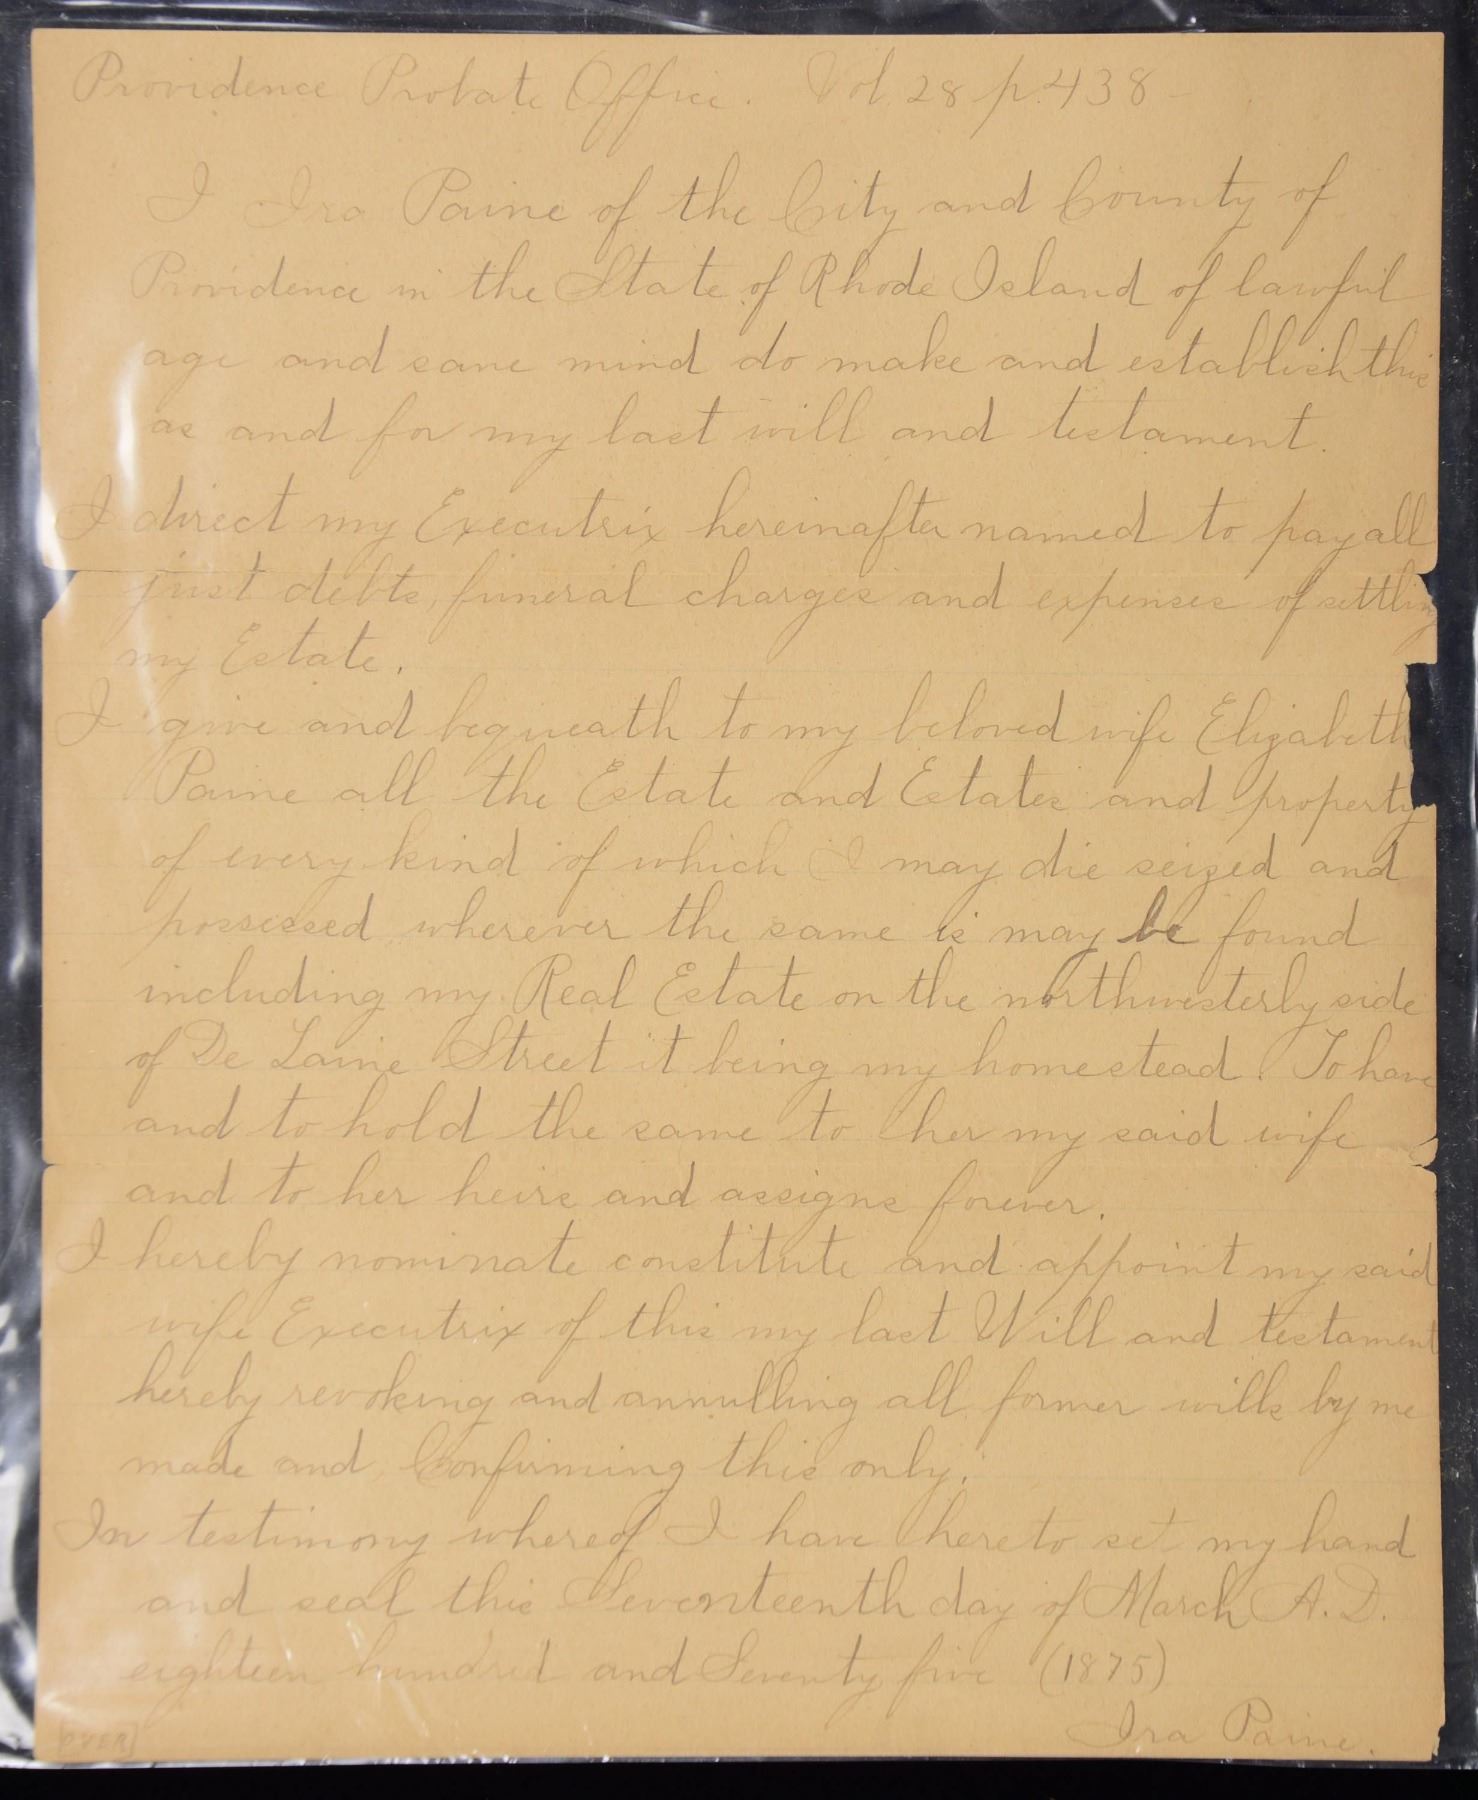 Providence Probate Office. Vol. 28 p. 438 -
I Ira Paine of the City and County of
Providence in the State of Rhode Island of lawful
age and sane mind do make and establish this
as and for my last will and testament.
I direct my Executrix hereinafter named to pay all
just debts, funeral charges and expenses of settling
my Estate.
I give and bequeath to my beloved wife Elizabeth
Paine all the Estate and Estates and property
of every kind of which I may die seized and
possessed wherever the same is may be found
including my Real Estate on the northwesterly side
of De Laine Street it being my homestead. To have
and to hold the same to her my said wife
and to her heirs and assigns forever.
I hereby nominate constitute and appoint my said
wife Executrix of this my last Will and testament
hereby revoking and annulling all former wills by me
made and Confirming this only.
In testimony whereof I have hereto set my hand
and seal this Seventeenth day of March A. D.
eighteen hundred and Seventy five (1875)
Ira Paine.
OVER